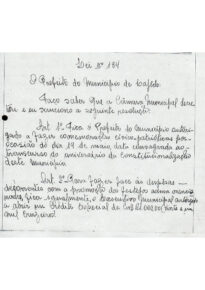 Lei Nº 184
O Prefeito do Município de Cafelâ
Faço saber que a Câmara Municipal decre
tou e eu sanciono a seguinte resolução:
Art. 1º Fica o Prefeito do Município autori-
gado a fazer comemorações cívico-patrióticas por
ocasião do dia 19 de maio data consagrada ao
transcurso do aniversário da Constitucionalização
deste Município
Art. 2º Para fazer face às despesas
decorrentes com a promoção dos festejos acima
fica igualmente, o Executivo Municipal autorizado
a abrir um Crédito Especial de
mil cruzeiros